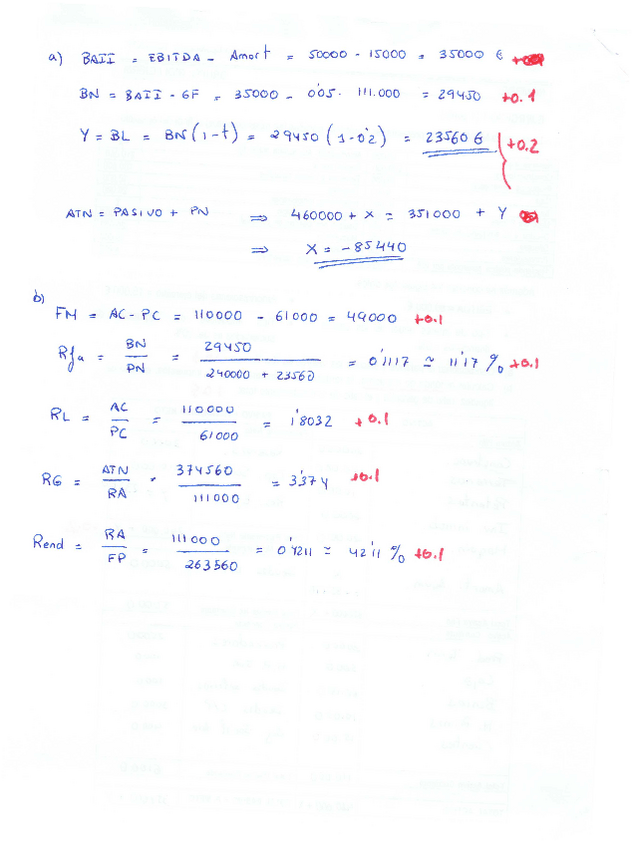 a) BAII = EBITDA - Amort = 50000 - 15000 = 35000 €
BN = BAII - GF = 35000 - 0'05 · 111.000 = 29450 +0.1
Y = BL = BN (1-t) = 29450 (1-0'2) = 23560 € +0.2
ATN = PASIVO + PN ⇒ 460000 + X = 351000 + Y
⇒ X = -85440
b)
FM = AC - PC = 110000 - 61000 = 49000 +0.1
Rfa = BN / PN = 29450 / 240000 + 23560 = 0'1117 ≃ 11'17 % +0.1
RL = AC / PC = 110000 / 61000 = 1'8032 +0.1
RG = ATN / RA = 374560 / 111000 = 3'374 +0.1
Rend = RA / FP = 111000 / 263560 = 0'4211 ≃ 42'11 % +0.1